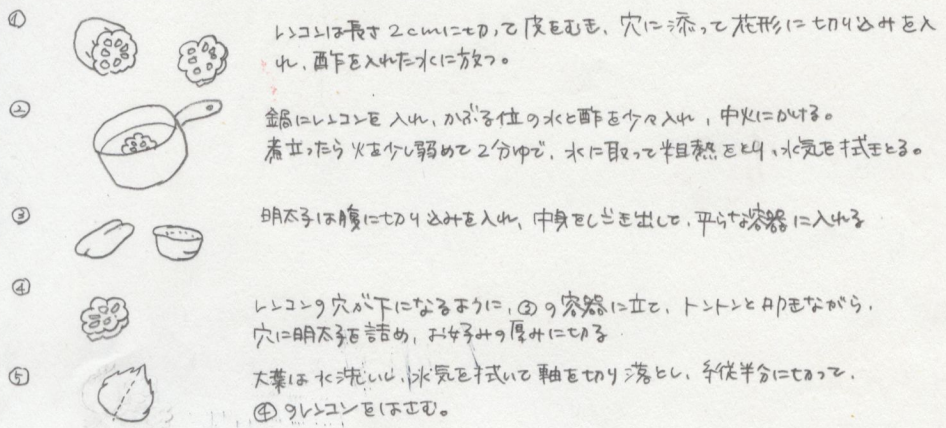 ① レンコンは長さ2cmに切って皮をむき、穴に添って花形に切り込みを入
れ、酢を入れた水に放つ。
② 鍋にレンコンを入れ、かぶる位の水と酢を少々入れ、中火にかける。
煮立ったら火を少し弱めて2分ゆで、水に取って粗熱をとり、水気を拭きとる。
③ 明太子は腹に切り込みを入れ、中身をしごき出して、平らな容器に入れる
④ レンコンの穴が下になるように、③の容器に立て、トントンと叩きながら、
穴に明太子を詰め、お好みの厚みに切る
⑤ 大葉は水洗いし、水気を拭いて軸を切り落とし、縦半分に切って、
④のレンコンをはさむ。